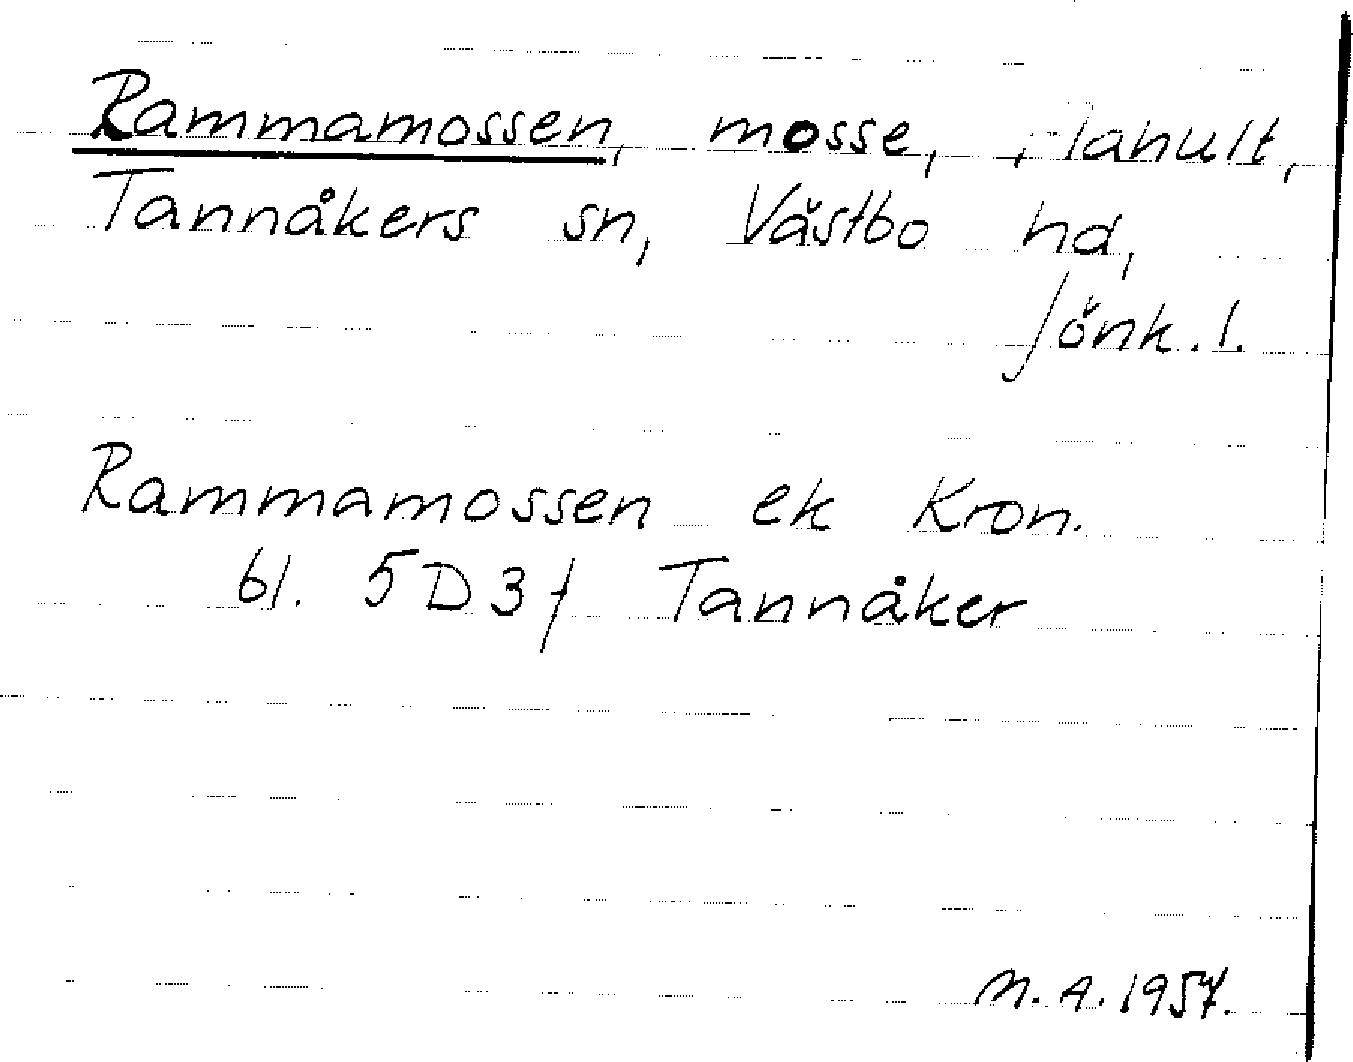 Rammamossen, mosse,
Tannåkers sn, Västbo hd,
Jönk. l.
Rammamossen ek Kron.
bl. 5D3f Tannåker
N. A. 1957.